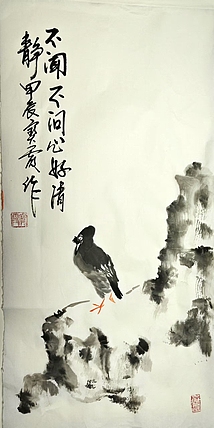 不闻不问心好清
静甲辰寒霄作